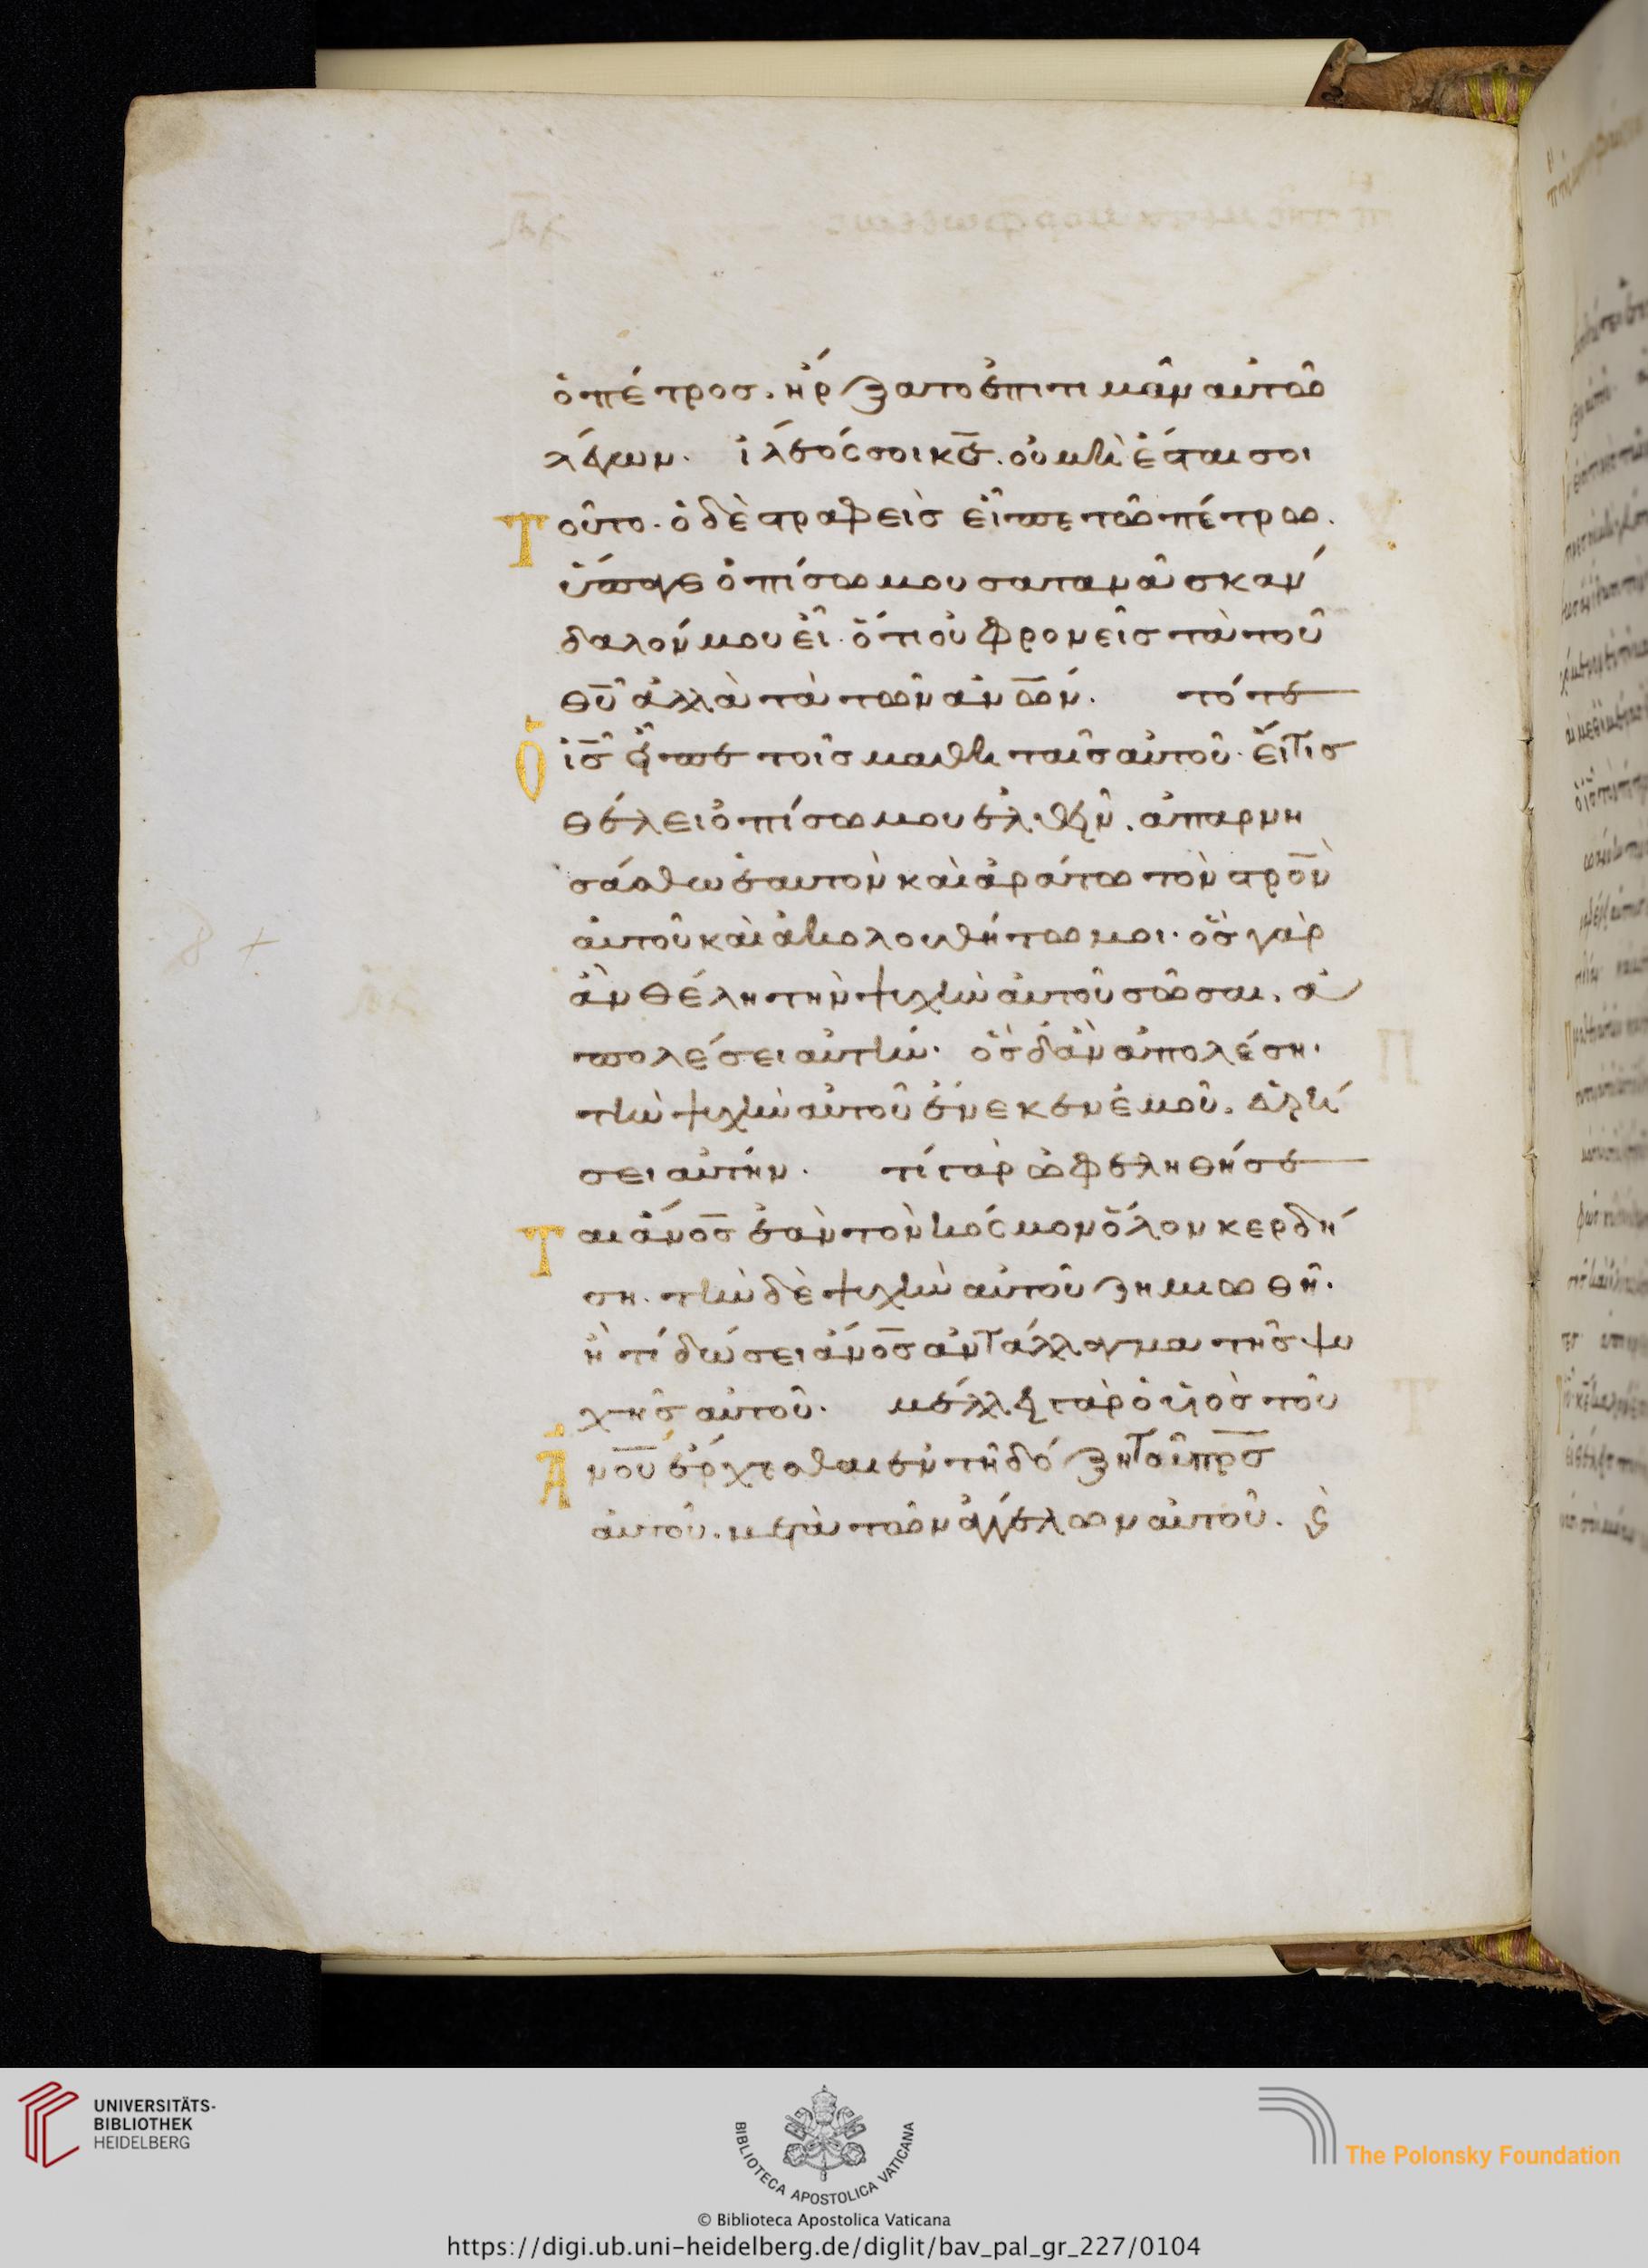 ὁ πέτρος. ἤρξατο ἐπιτιμᾶν αὐτῶ
λέγων. ἵλεός σοι κ̅ε̅. οὐ μὴ ἔσται σοι
τοῦτο. ὁ δὲ στραφεὶς εἶπε τῶ πέτρω.
ὕπαγε ὀπίσω μου σατανᾶ σκάν
δαλόν μου εἶ. ὅτι οὐ φρονεῖς τὰ τοῦ
θ̅υ̅ ἀλλὰ τὰ τῶν ἀν̅ω̅ν. τότε
Ὁ ι̅ς̅ εἶπε τοῖς μαθηταῖς αὐτοῦ. εἴ τις
θέλει ὀπίσω μου ἐλθεῖν. ἀπαρνη
σάσθω ἑαυτὸν καὶ ἀράτω τὸν στρ̅ο̅ν
αὐτοῦ καὶ ἀκολουθήτω μοι. ὃς γὰρ
ἂν θέλη τὴν ψυχὴν αὐτοῦ σῶσαι. ἀ
πολέσει αὐτήν. ὃς δ' ἂν ἀπολέση.
τὴν ψυχὴν αὐτοῦ ἕνεκεν ἐμοῦ. εὑρή
σει αὐτήν. τί γὰρ ὠφεληθήσε
Ται ἄν̅ο̅ς̅ ἐὰν τὸν κόσμον ὅλον κερδή
ση. τὴν δὲ ψυχὴν αὐτοῦ ζημιωθῆ.
ἢ τί δώσει ἄν̅ο̅ς̅ ἀντάλλαγμα τῆς ψυ
χῆς αὐτοῦ. μέλλει γὰρ ὁ υἱὸς τοῦ
Ἀν̅ο̅υ̅ ἔρχεσθαι ἐν τῆ δόξη τοῦ π̅ρ̅ς̅
αὐτοῦ. μετὰ τῶν ἀγγέλων αὐτοῦ. ϗ̀
UNIVERSITÄTS-
BIBLIOTHEK
HEIDELBERG
BIBLIOTECA APOSTOLICA VATICANA
The Polonsky Foundation
© Biblioteca Apostolica Vaticana
https://digi.ub.uni-heidelberg.de/diglit/bav_pal_gr_227/0104